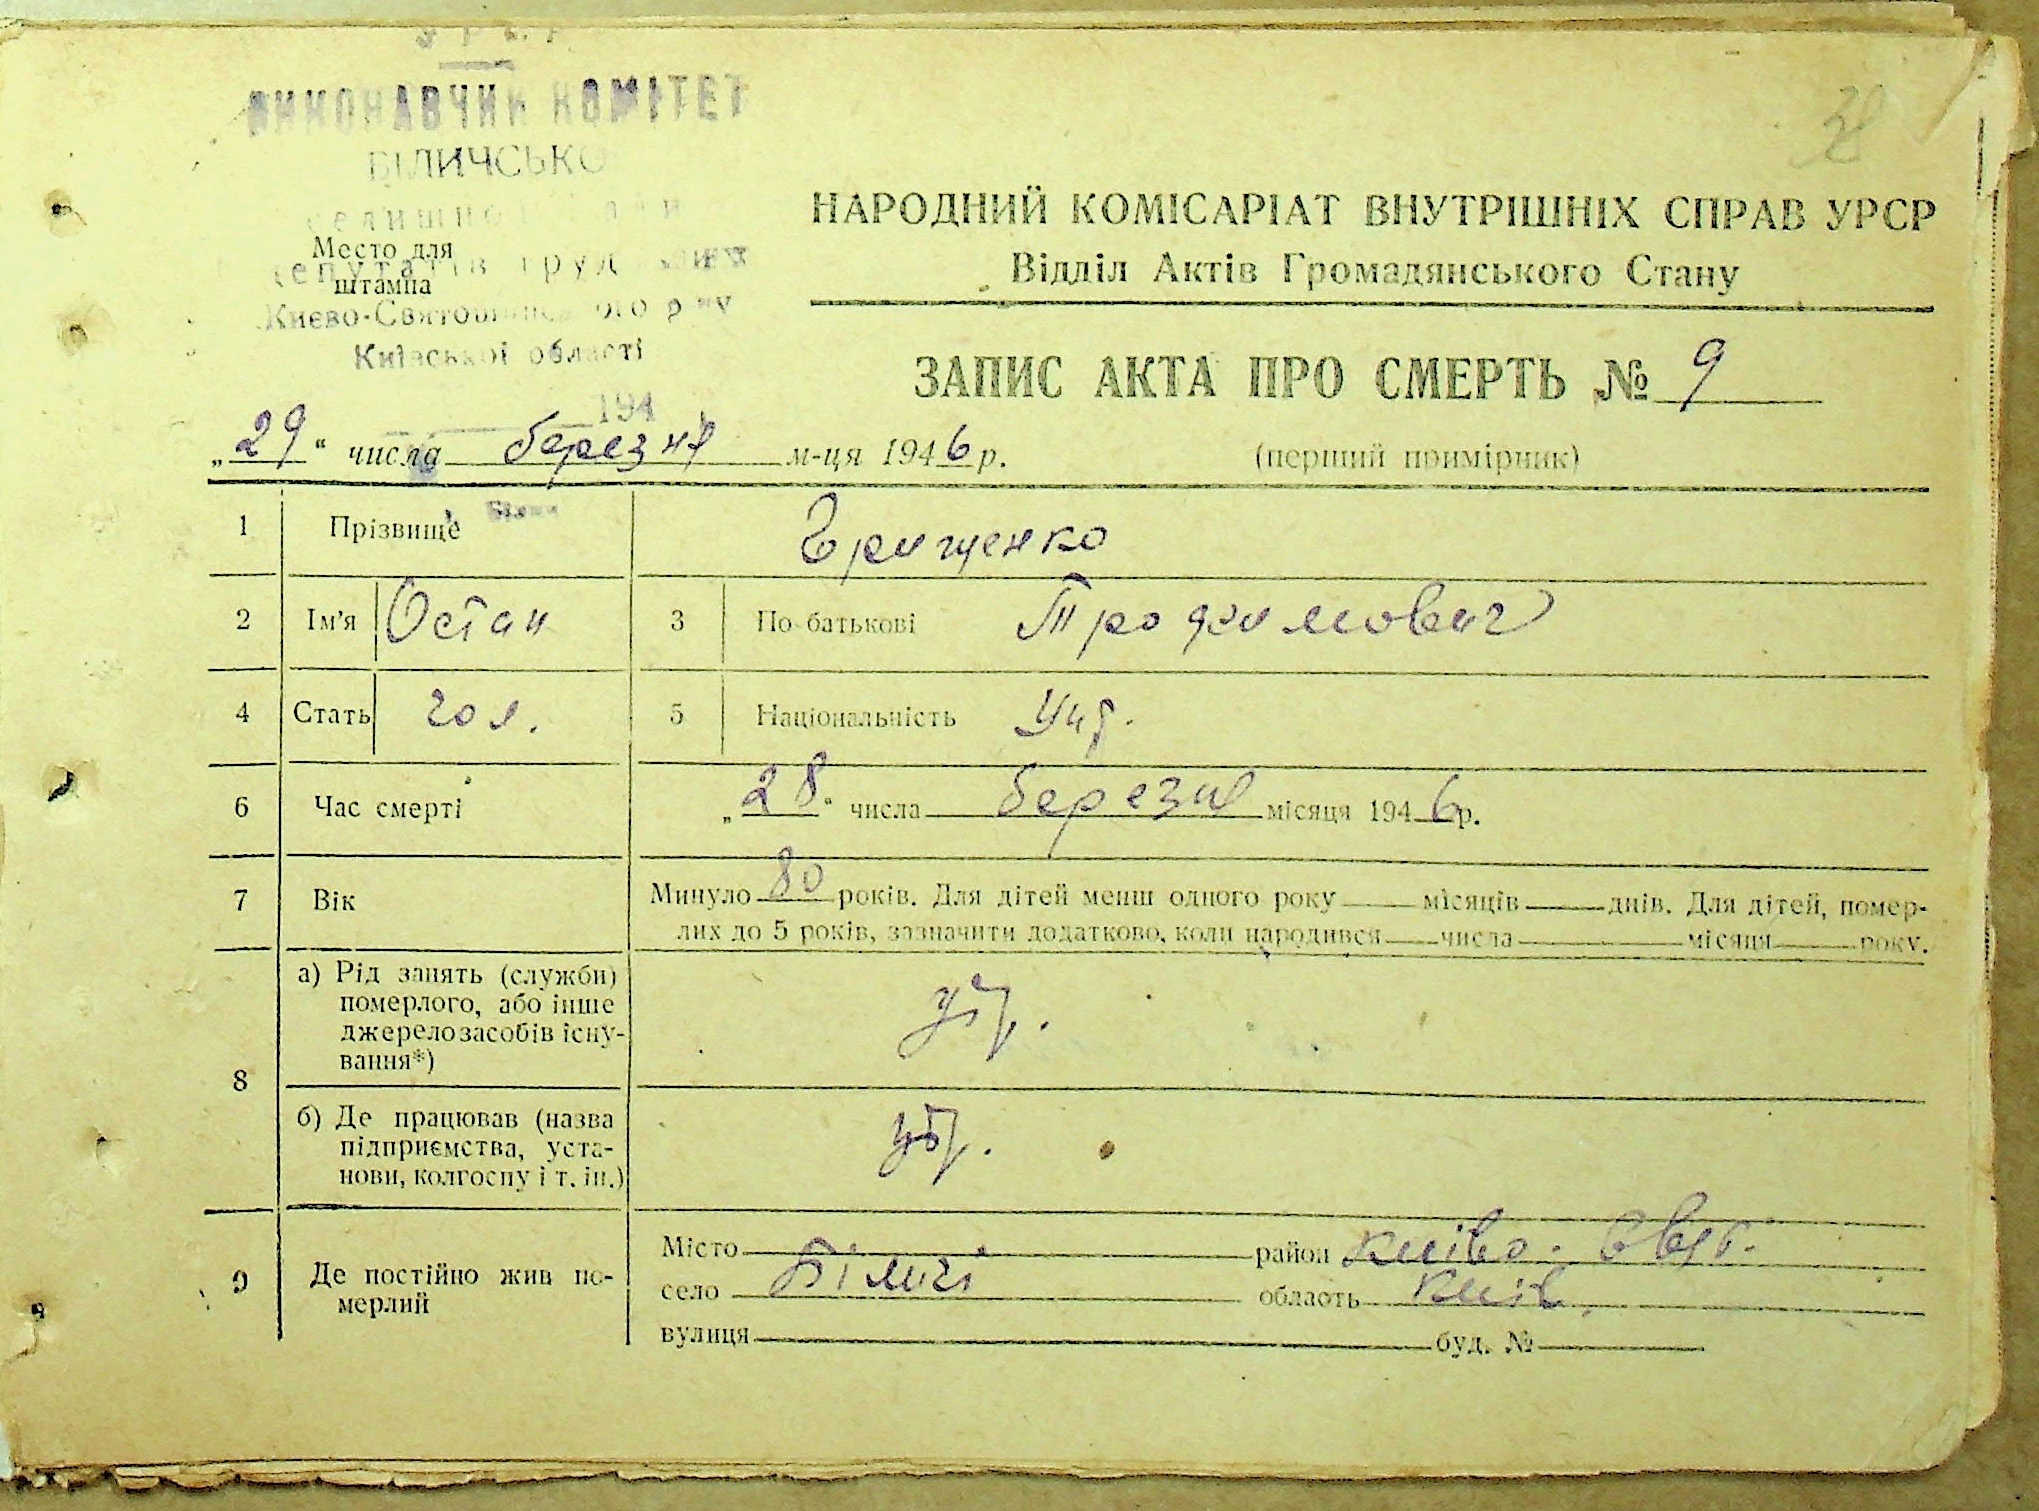 У Р С Р
ВИКОНАВЧИЙ КОМІТЕТ
БІЛИЧСЬКО
селищно
Место для
депутатів
штампа
Києво-Святошинського р-ну
Київської області
194
НАРОДНИЙ КОМІСАРІАТ ВНУТРІШНІХ СПРАВ УРСР
Відділ Актів Громадянського Стану
ЗАПИС АКТА ПРО СМЕРТЬ № 9
„29“ числа березня м-ця 1946 р.
(перший примірник)
1 Прізвище Грищенко
2 Ім'я Остап 3 По-батькові Трохимович
4 Стать чол. 5 Національність Укр.
6 Час смерті „28“ числа березня місяця 1946 р.
7 Вік Минуло 80 років. Для дітей менш одного року місяців днів. Для дітей, помер-
лих до 5 років, зазначити додатково, коли народився числа місяця року.
8 а) Рід занять (служби)
померлого, або інше
джерело засобів існу-
вання*)
утр.
б) Де працював (назва
підприємства, уста-
нови, колгоспу і т. ін.)
9 Де постійно жив по-
мерлий
Місто район Києво-Свят.
село Біличі область Київ.
вулиця буд. №